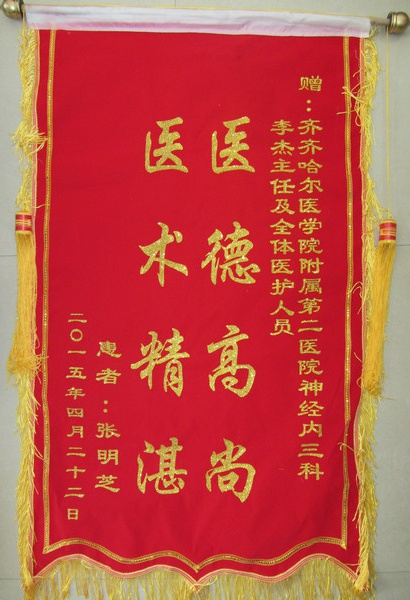 赠：齐齐哈尔医学院附属第二医院神经内三科
李杰主任及全体医护人员
医德高尚
医术精湛
患者：张明芝
二〇一五年四月二十二日